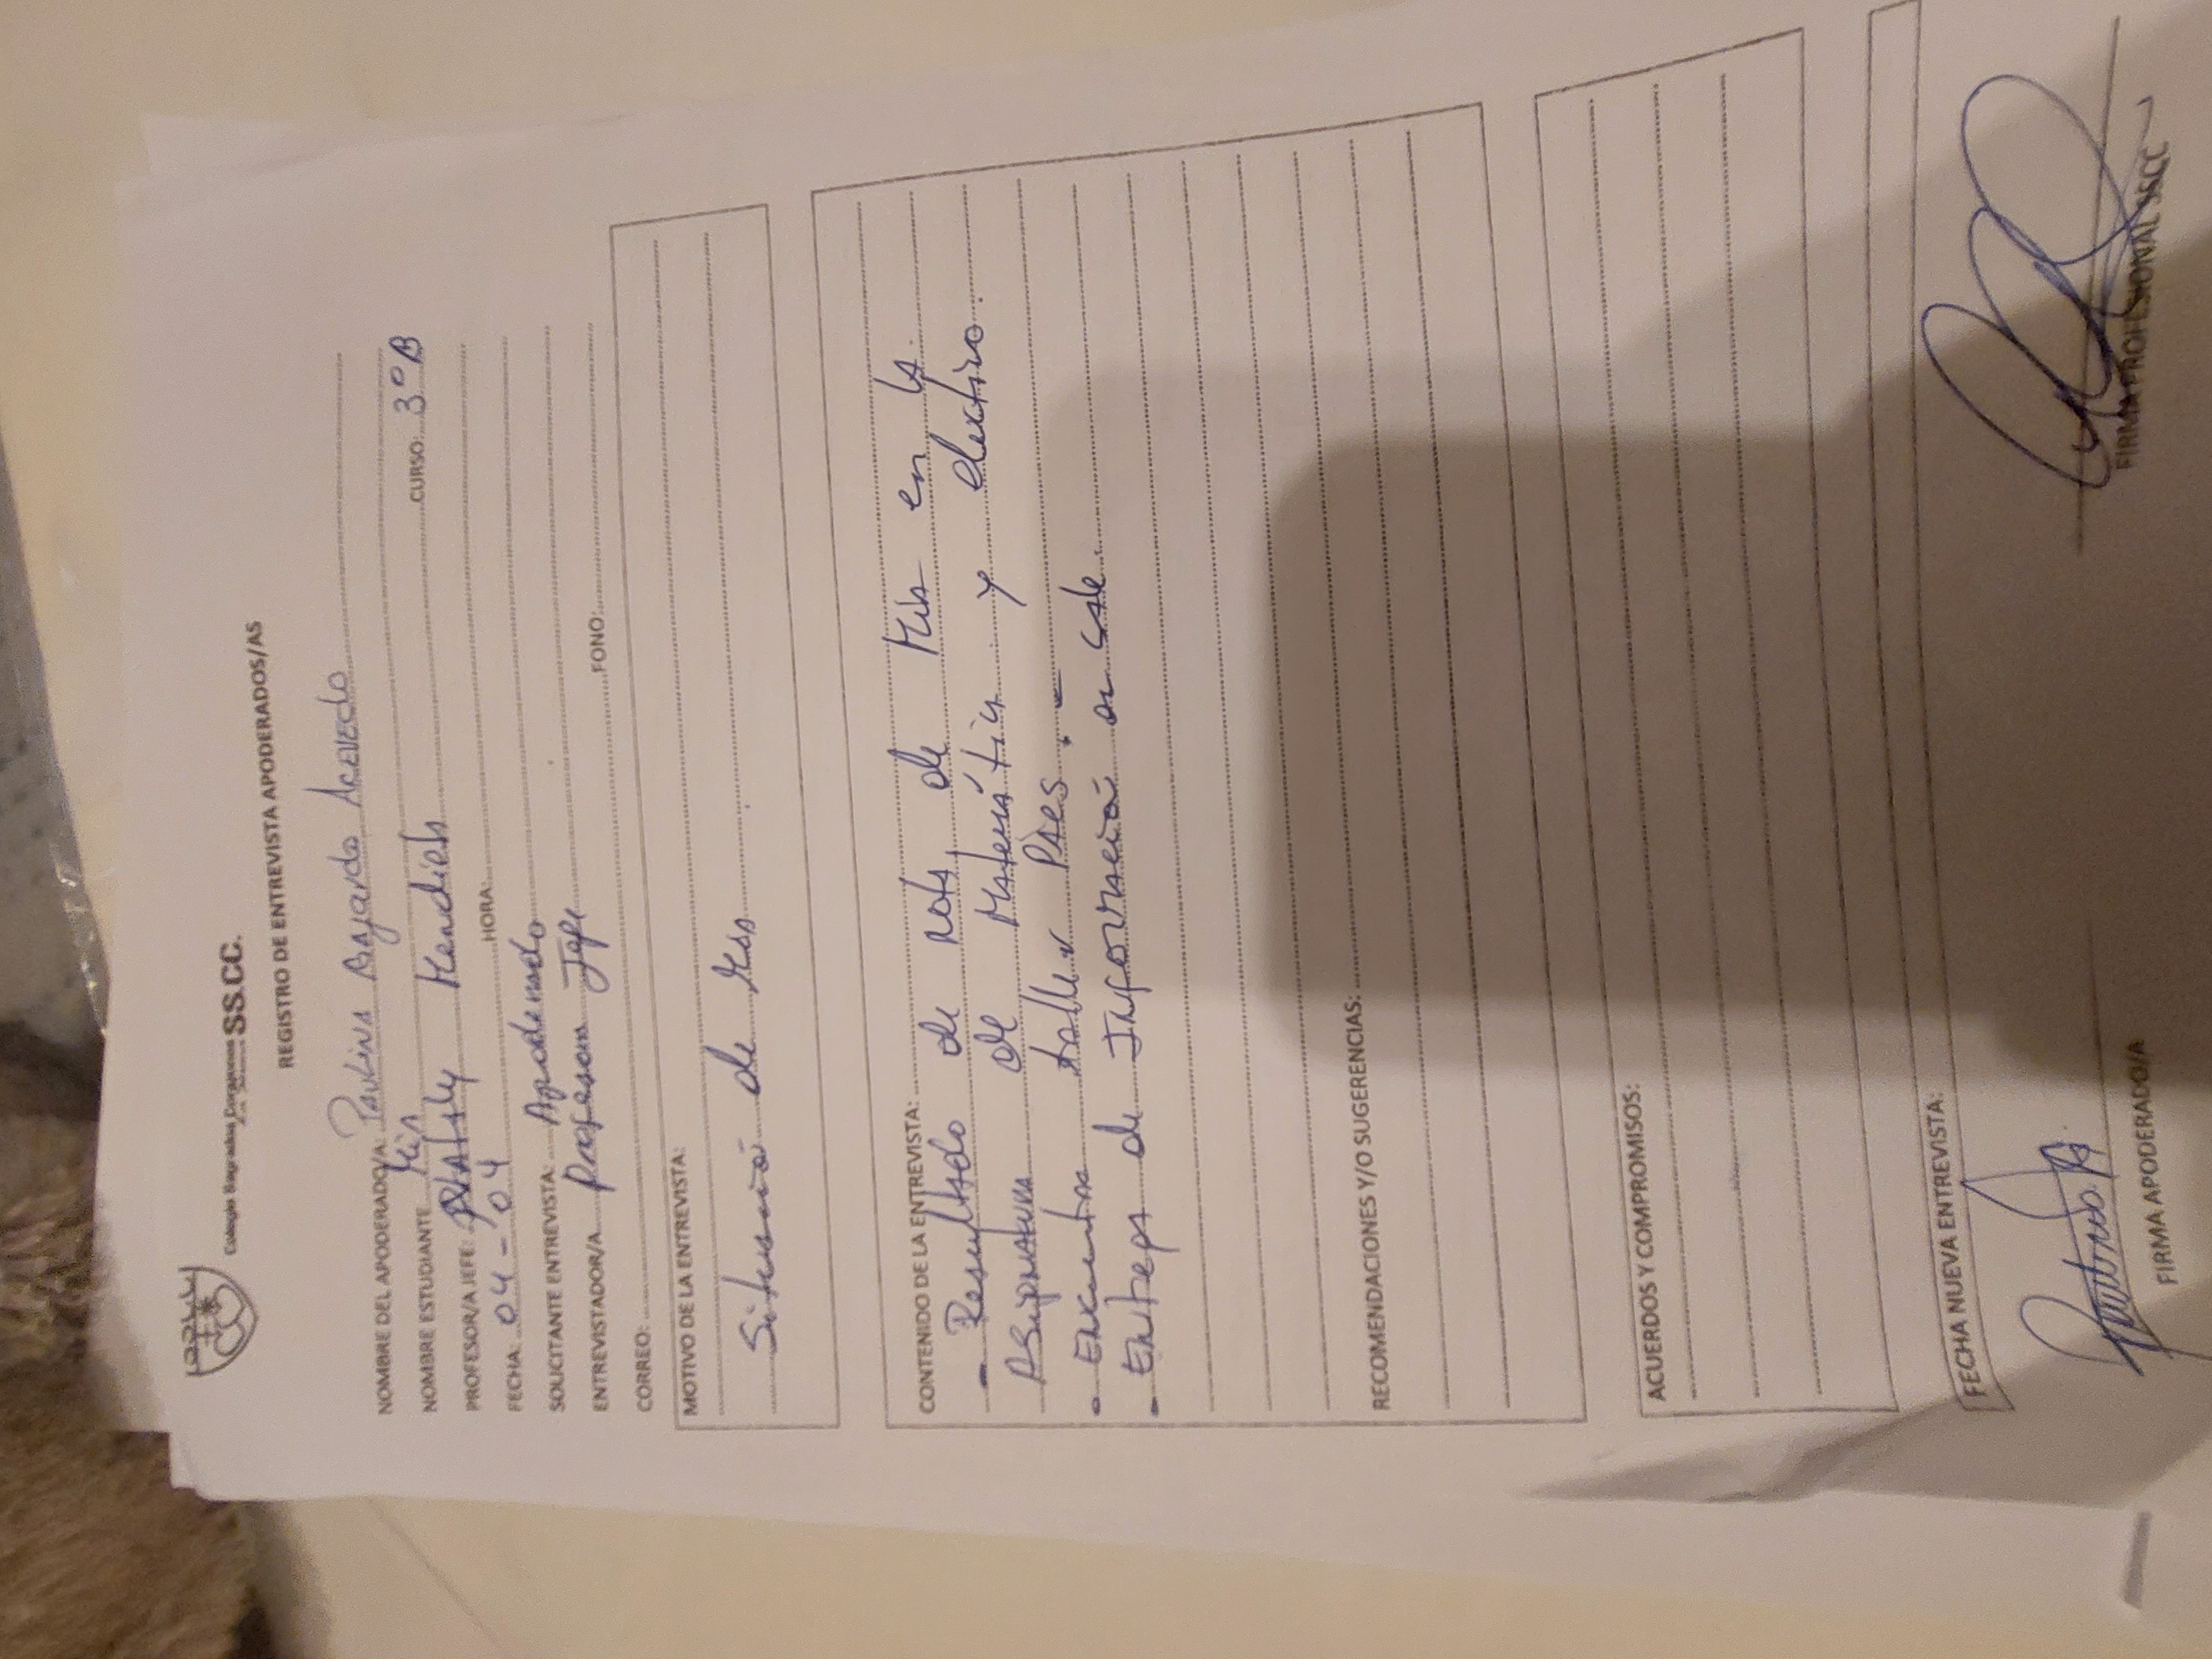 Colegio Sagrados Corazones SS.CC.
REGISTRO DE ENTREVISTA APODERADOS/AS
NOMBRE DEL APODERADO/A: Paulina Bajardo Acevedo
NOMBRE ESTUDIANTE CURSO: 3°B
PROFESOR/A JEFE: HORA:
FECHA 04-04
SOLICITANTE ENTREVISTA: Apoderado
ENTREVISTADOR/A Profesora Jefe
CORREO: FONO:
MOTIVO DE LA ENTREVISTA:
Situación de
CONTENIDO DE LA ENTREVISTA:
- Resultado de nota de en la
Asignatura de Matemática y electivo.
- taller
- Entrega de Información a este.
RECOMENDACIONES Y/O SUGERENCIAS:
ACUERDOS Y COMPROMISOS:
FECHA NUEVA ENTREVISTA:
FIRMA APODERADO/A FIRMA PROFESIONAL SSCC